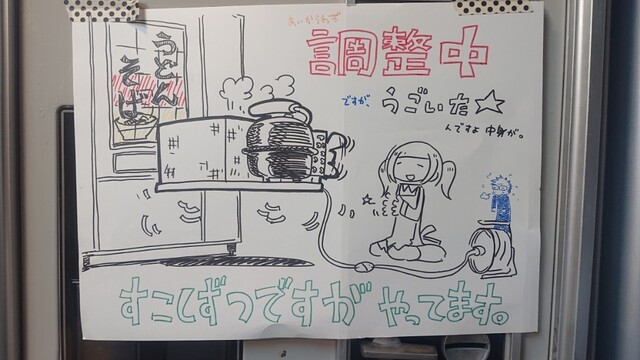 あいかわらず
調整中
ですが、
うごいた☆
んですよ 中身が。
うどん
そば
すこしずつですが やってます。